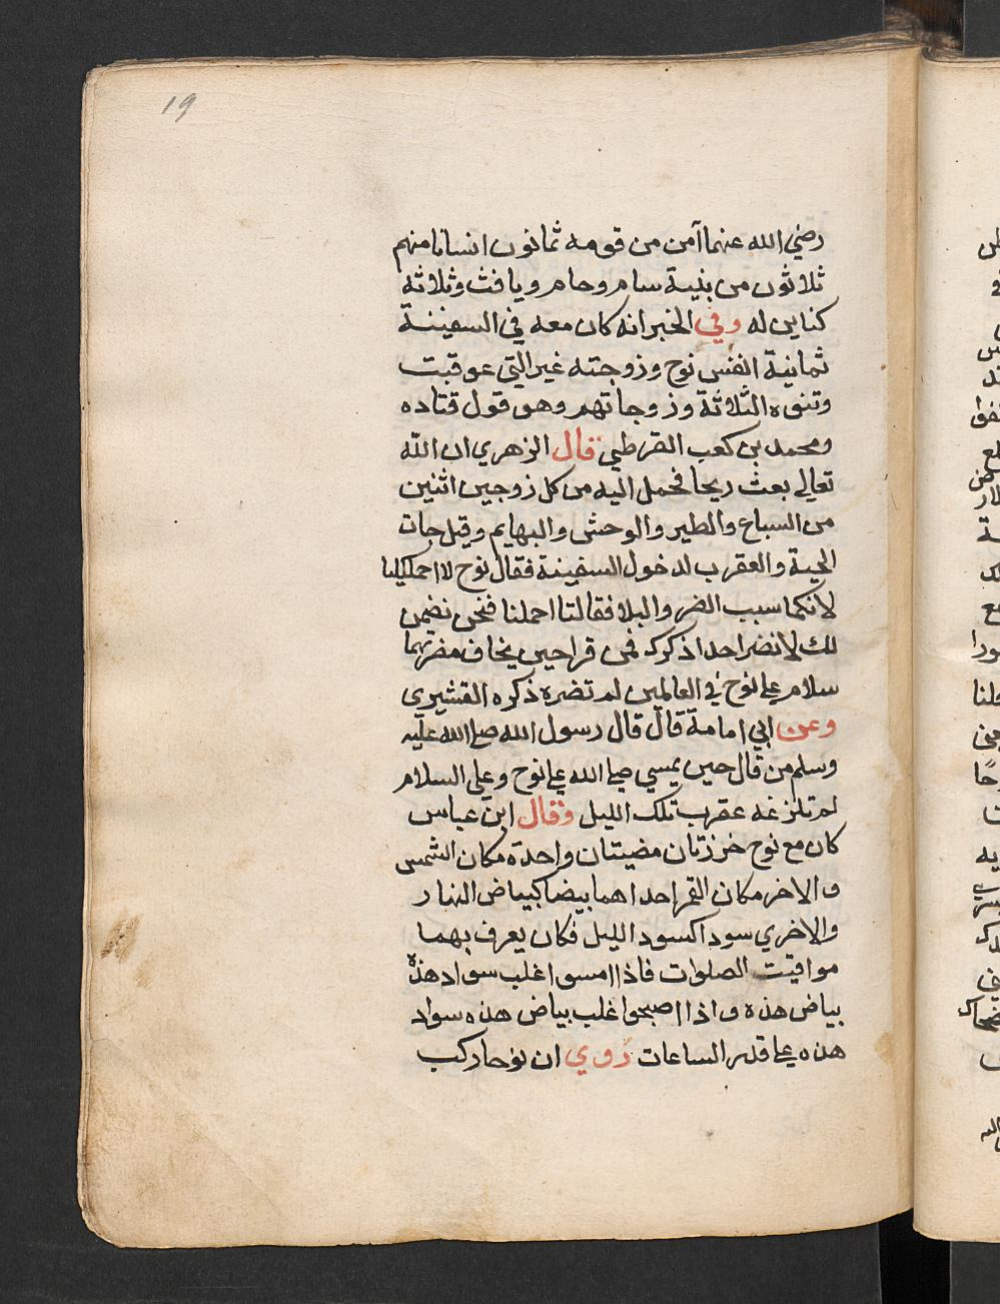 19
رضي الله عنهما آمن من قومه ثمانون انسانا منهم
ثلاثون من بنيه سام وحام ويافث وثلاثة
كناين له وفي الخبر انه كان معه في السفينة
ثمانية انفس نوح وزوجته غير التي عوقبت
وبنوه الثلاثة وزوجاتهم وهو قول قتاده
ومحمد بن كعب القرطي قال الزهري ان الله
تعالي بعث ريحا فحمل اليه من كل زوجين اثنين
من السباع والطير والوحش والبهايم وقيل جات
الحية والعقرب لدخول السفينة فقال نوح لا احملكما
لانكما سبب الضر والبلا فقالتا احملنا فنحن نضمن
لك لا نضر احدا ذكرك فمن قرا حين يخاف مضرتهما
سلام علي نوح في العالمين لم تضره ذكره القشيري
وعن ابي امامة قال قال رسول الله صلي الله عليه
وسلم من قال حين يمسي صلي الله علي نوح وعلي السلام
لم تلزغه عقرب تلك الليل وقال ابن عباس
كان مع نوح خرزتان مضيتان واحدة مكان الشمس
والاخر مكان القمر احداهما بيضا كبياض النهار
والاخري سودا كسود الليل فكان يعرف بهما
مواقيت الصلوات فاذا امسوا غلب سواد هذه
بياض هذه واذا اصبحوا غلب بياض هذه سواد
هذه علي قدر الساعات روي ان نوحا ركب